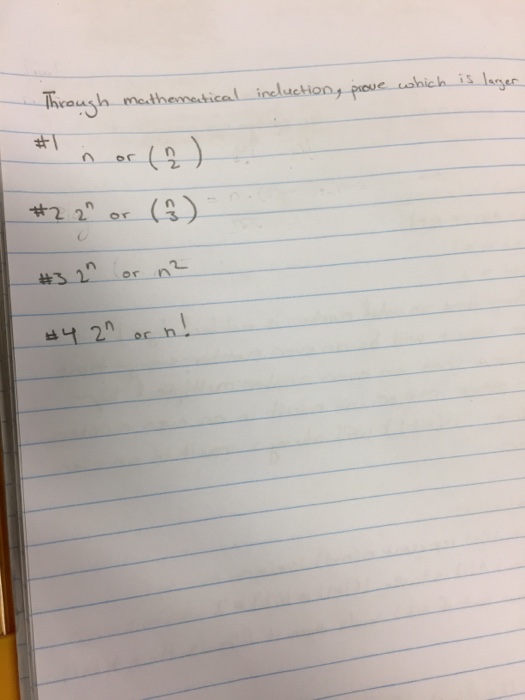 Through mathematical induction, prove which is larger
#1 n or (n 2)
#2 2ⁿ or (n 3)
#3 2ⁿ or n²
#4 2ⁿ or n!